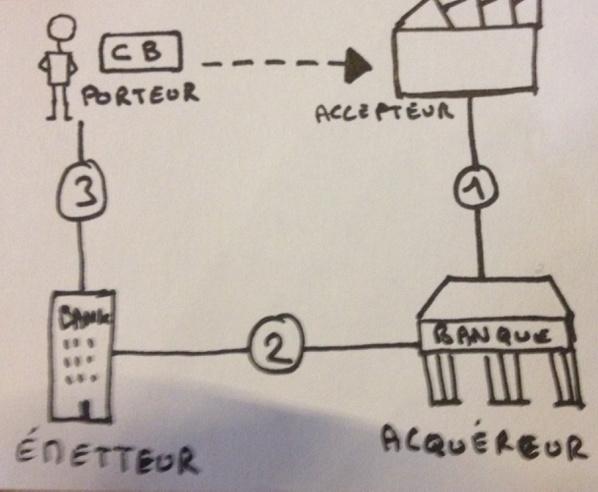 CB
PORTEUR
ACCEPTEUR
3
1
BANK
2
BANQUE
ÉMETTEUR
ACQUÉREUR